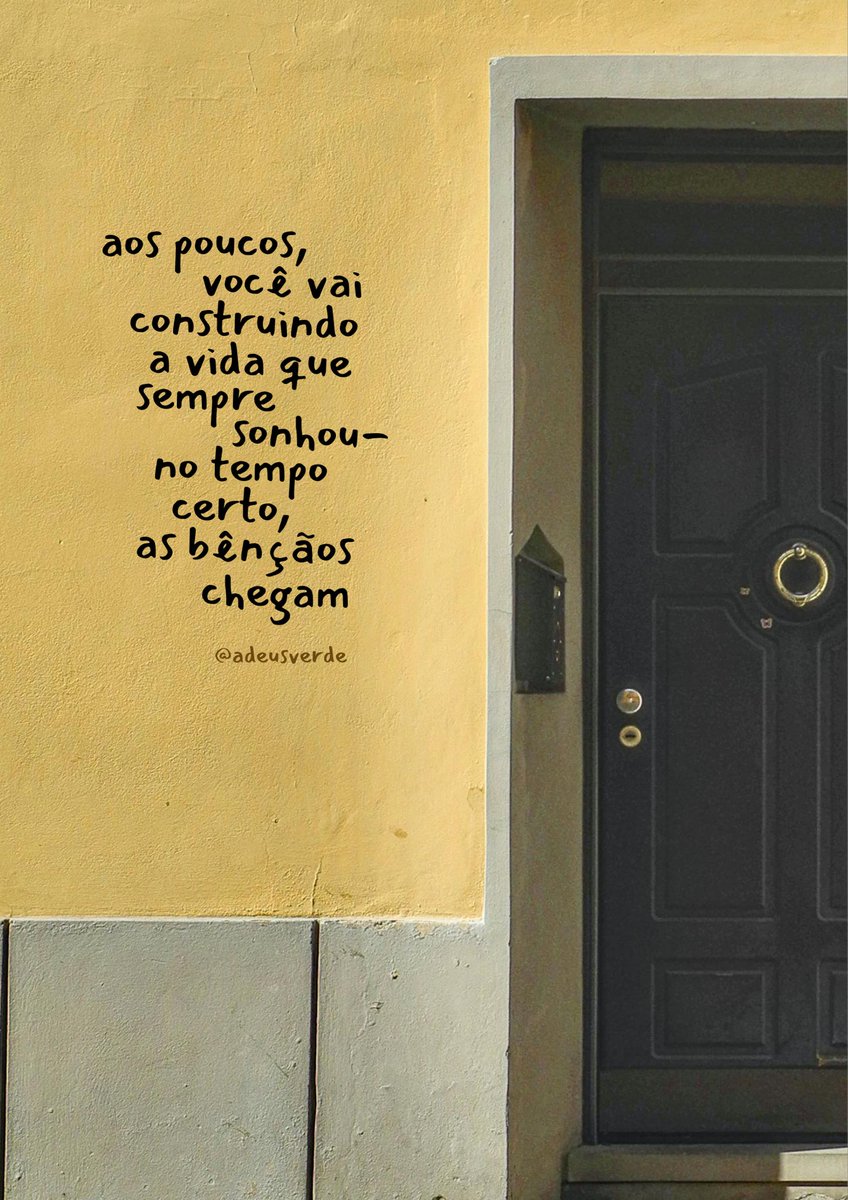 aos poucos,
você vai
construindo
a vida que
sempre
sonhou-
no tempo
certo,
as bênçãos
chegam
@adeusverde